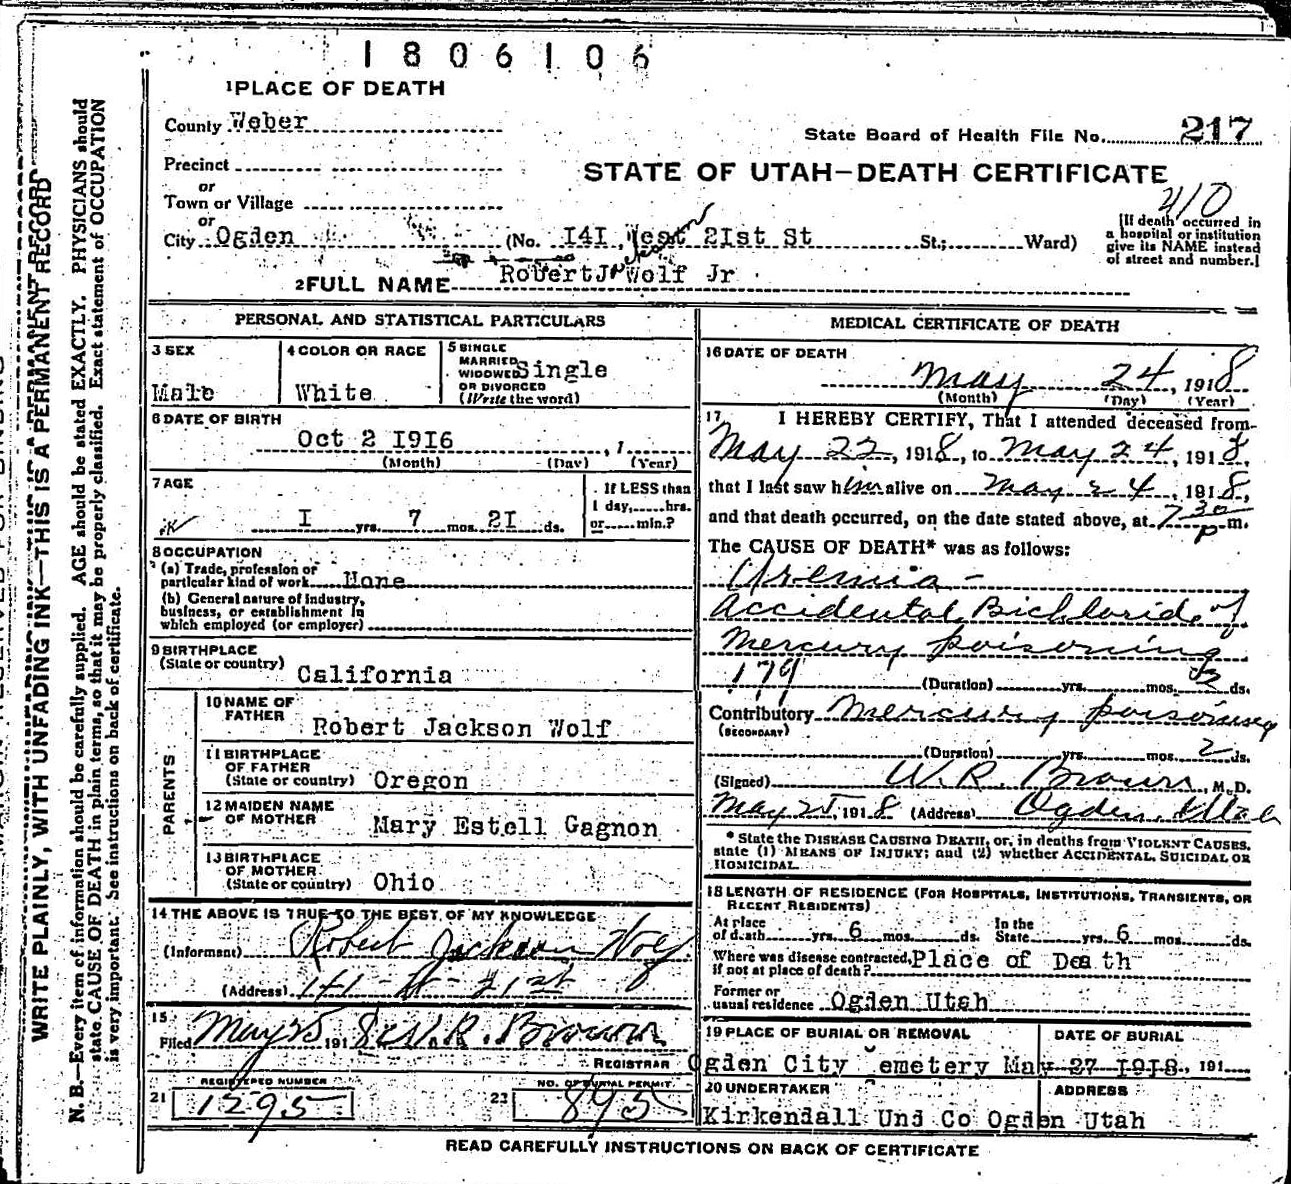 1806106
1 PLACE OF DEATH
County Weber
State Board of Health File No. 217
Precinct
STATE OF UTAH—DEATH CERTIFICATE
or
Town or Village
410
or
City Ogden (No. I4I West 2Ist St St.; Ward)
[If death occurred in
a hospital or institution
give its NAME instead
of street and number.]
2 FULL NAME Robert Jackson Wolf Jr
PERSONAL AND STATISTICAL PARTICULARS
3 SEX
Male
4 COLOR OR RACE
White
5 SINGLE
MARRIED
WIDOWED Single
OR DIVORCED
(Write the word)
6 DATE OF BIRTH
Oct 2 I9I6 , 1
(Month) (Day) (Year)
7 AGE
I yrs. 7 mos. 2I ds.
If LESS than
1 day, hrs.
or min.?
8 OCCUPATION
(a) Trade, profession or
particular kind of work None
(b) General nature of industry,
business, or establishment in
which employed (or employer)
9 BIRTHPLACE
(State or country)
California
PARENTS
10 NAME OF
FATHER
Robert Jackson Wolf
11 BIRTHPLACE
OF FATHER
(State or country) Oregon
12 MAIDEN NAME
OF MOTHER
Mary Estell Gagnon
13 BIRTHPLACE
OF MOTHER
(State or country) Ohio
14 THE ABOVE IS TRUE TO THE BEST OF MY KNOWLEDGE
(Informant) Robert Jackson Wolf
(Address) 141 - W - 21st
15
Filed May 25 1918 R. Brown
REGISTRAR
21 REGISTERED NUMBER
1295
22 NO. OF BURIAL PERMIT
895
MEDICAL CERTIFICATE OF DEATH
16 DATE OF DEATH
May 24, 1918
(Month) (Day) (Year)
17 I HEREBY CERTIFY, That I attended deceased from
May 22, 1918, to May 24, 1918,
that I last saw him alive on May 24, 1918,
and that death occurred, on the date stated above, at 7 30 p m.
The CAUSE OF DEATH* was as follows:
Uremia -
Accidental Bichloride of
Mercury poisoning
179
(Duration) yrs. mos. 2 ds.
Contributory Mercury poisoning
(SECONDARY)
(Duration) yrs. mos. 2 ds.
(Signed) W. R. Brown, M.D.
May 25, 1918 (Address) Ogden, Utah
* State the DISEASE CAUSING DEATH, or, in deaths from VIOLENT CAUSES,
state (1) MEANS OF INJURY; and (2) whether ACCIDENTAL, SUICIDAL OR
HOMICIDAL.
18 LENGTH OF RESIDENCE (FOR HOSPITALS, INSTITUTIONS, TRANSIENTS, OR
RECENT RESIDENTS)
At place
of death yrs. 6 mos. ds.
In the
State yrs. 6 mos. ds.
Where was disease contracted, Place of Death
if not at place of death?
Former or
usual residence Ogden Utah
19 PLACE OF BURIAL OR REMOVAL
Ogden City Cemetery
DATE OF BURIAL
May 27 I9I8, 191
20 UNDERTAKER
ADDRESS
Kirkendall Und Co Ogden Utah
READ CAREFULLY INSTRUCTIONS ON BACK OF CERTIFICATE
WRITE PLAINLY, WITH UNFADING INK—THIS IS A PERMANENT RECORD
N. B.—Every item of information should be carefully supplied. AGE should be stated EXACTLY. PHYSICIANS should
state CAUSE OF DEATH in plain terms, so that it may be properly classified. Exact statement of OCCUPATION
is very important. See instructions on back of certificate.